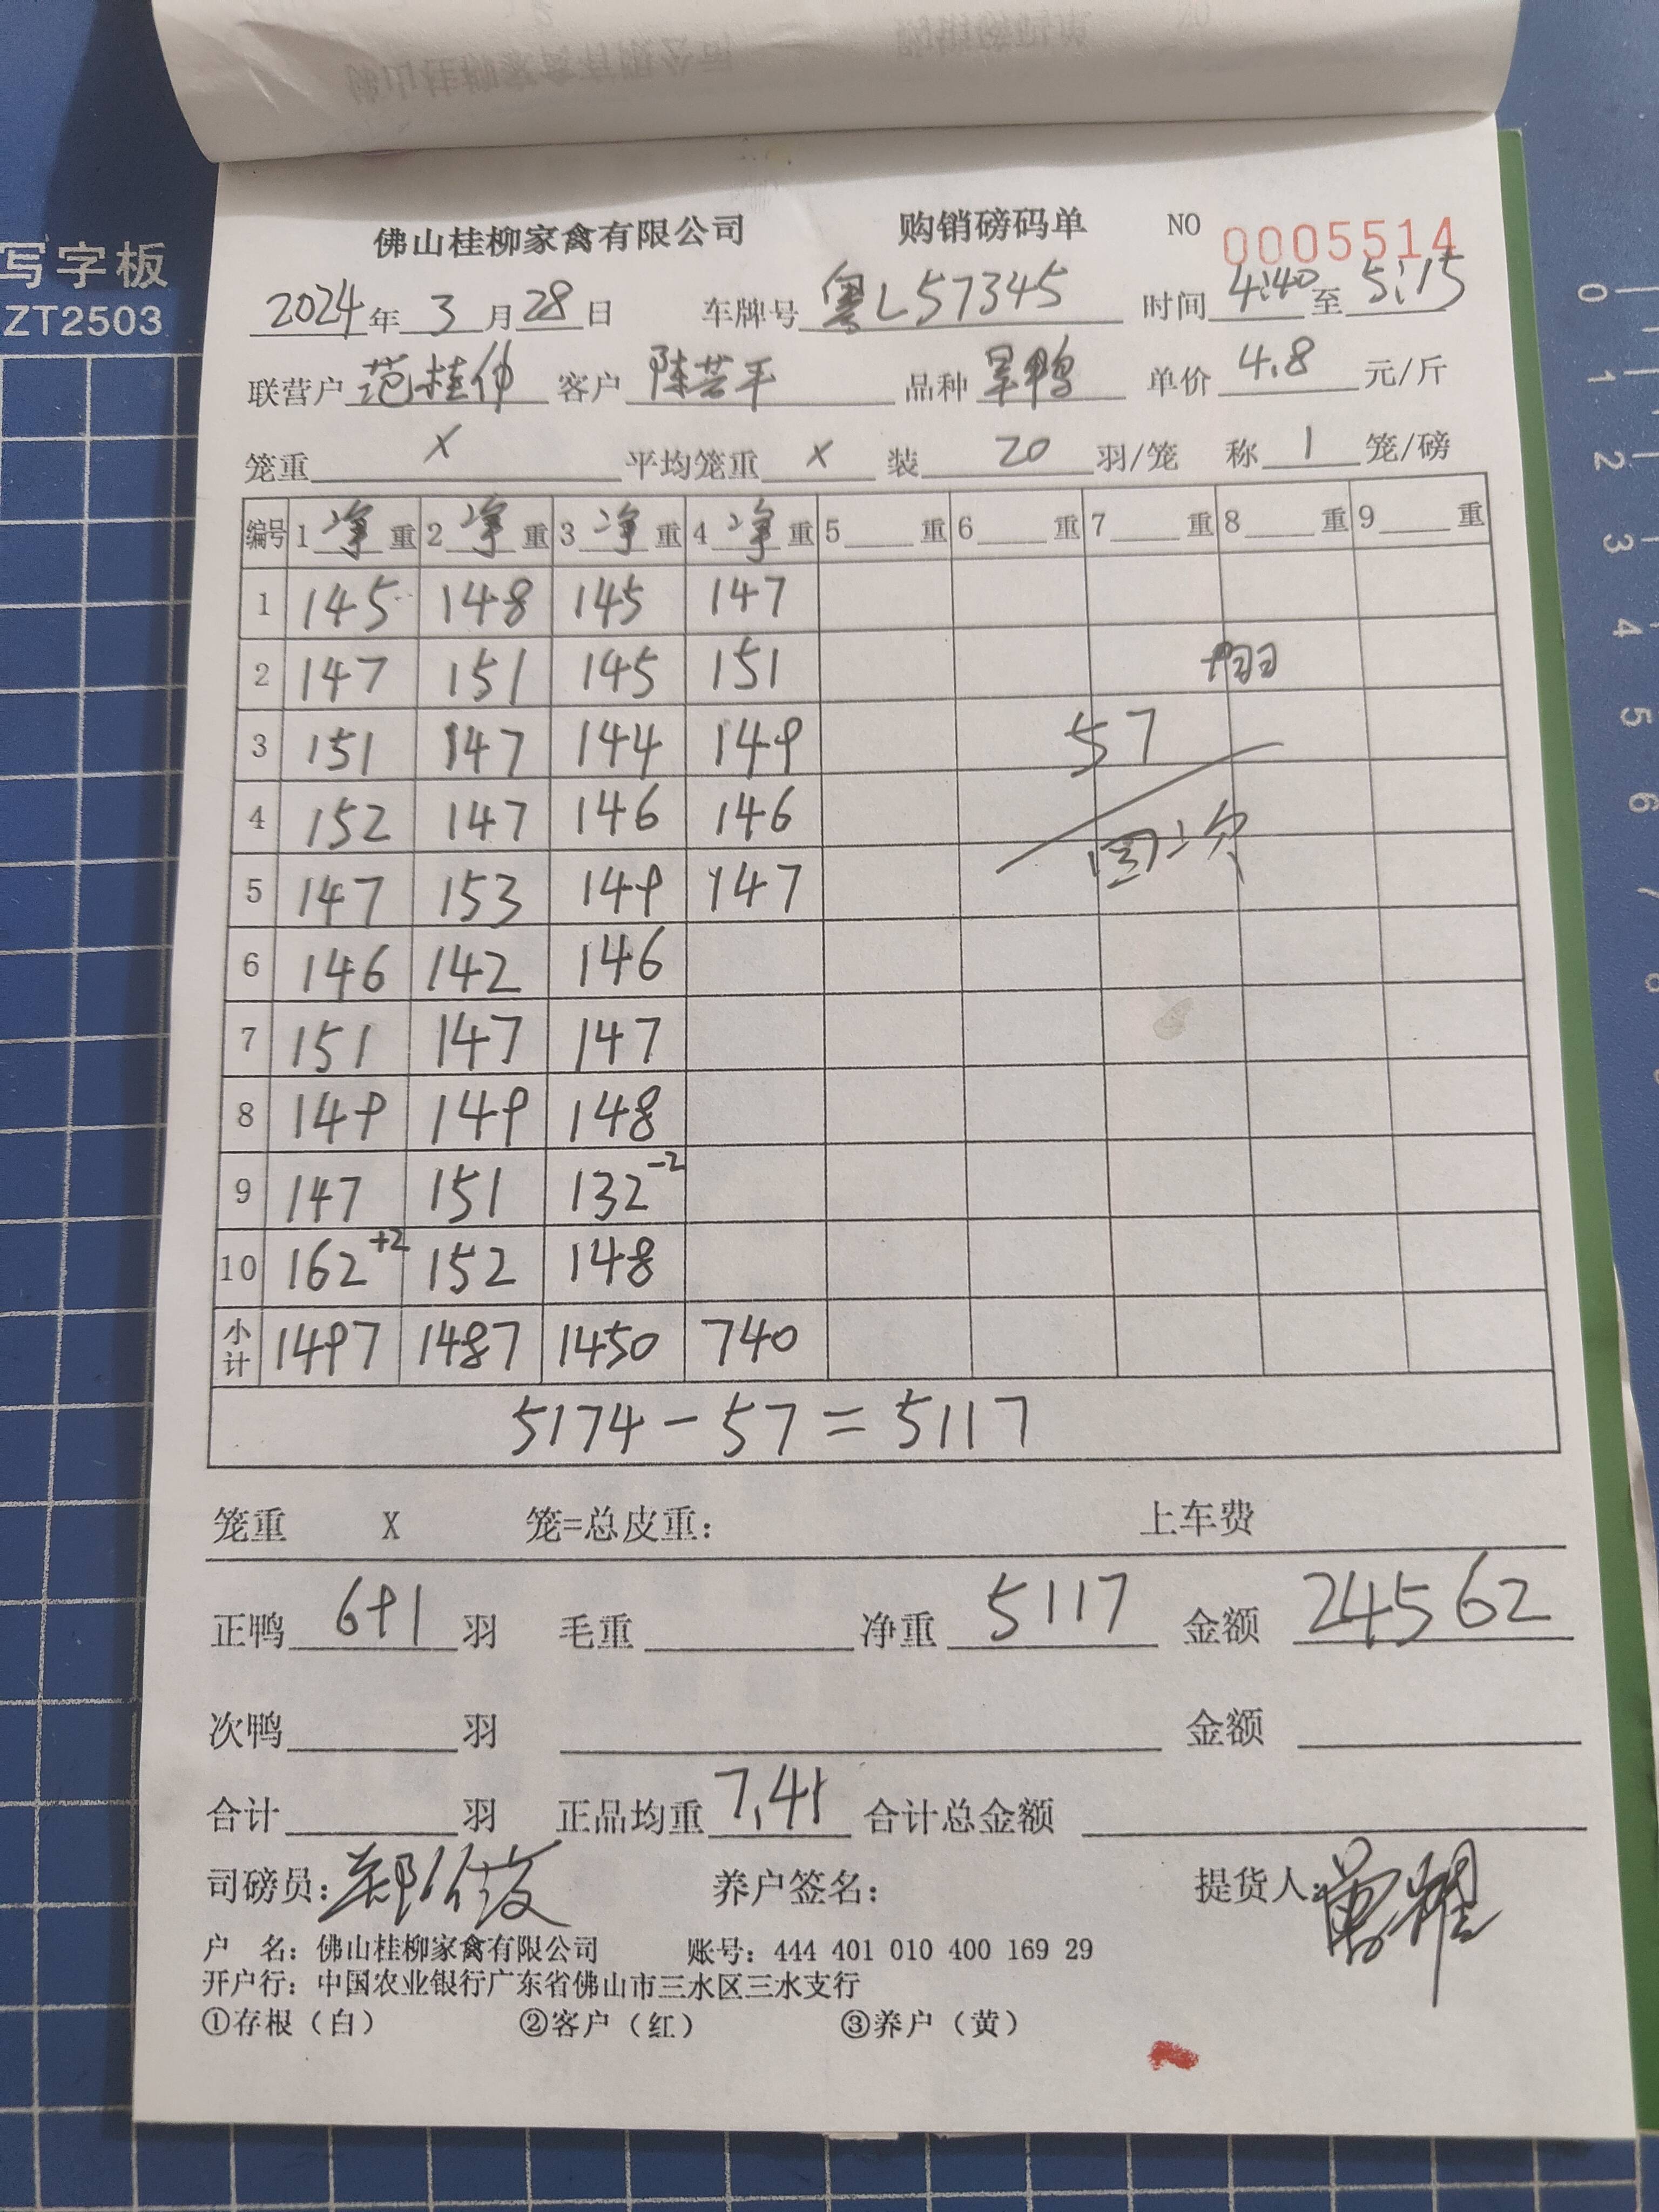 写字板
ZT2503
佛山桂柳家禽有限公司 购销磅码单 NO 0005514
2024年3月28日 车牌号 粤L57345 时间 4:40 至 5:15
联营户 范桂伸 客户 陈芸平 品种 旱鸭 单价 4.8 元/斤
笼重 X 平均笼重 X 装 20 羽/笼 称 1 笼/磅
编号 1 净 重 2 净 重 3 净 重 4 净 重 5 重 6 重 7 重 8 重 9 重
1 145 148 145 147
2 147 151 145 151
3 151 147 144 149 57
4 152 147 146 146
5 147 153 149 147
6 146 142 146
7 151 147 147
8 149 149 148
9 147 151 132-2
10 162+2 152 148
小计 1497 1487 1450 740
5174-57=5117
笼重 X 笼=总皮重: 上车费
正鸭 691 羽 毛重 净重 5117 金额 24562
次鸭 羽 金额
合计 羽 正品均重 7.41 合计总金额
司磅员: 养户签名: 提货人:
户 名: 佛山桂柳家禽有限公司 账号: 444 401 010 400 169 29
开户行: 中国农业银行广东省佛山市三水区三水支行
①存根（白） ②客户（红） ③养户（黄）
0
1
2
3
4
5
6
7
8